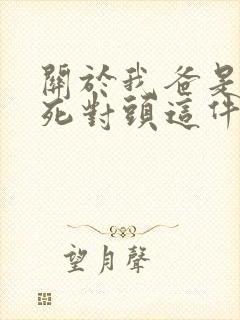 關於我爸是
死對頭這件
望月聲